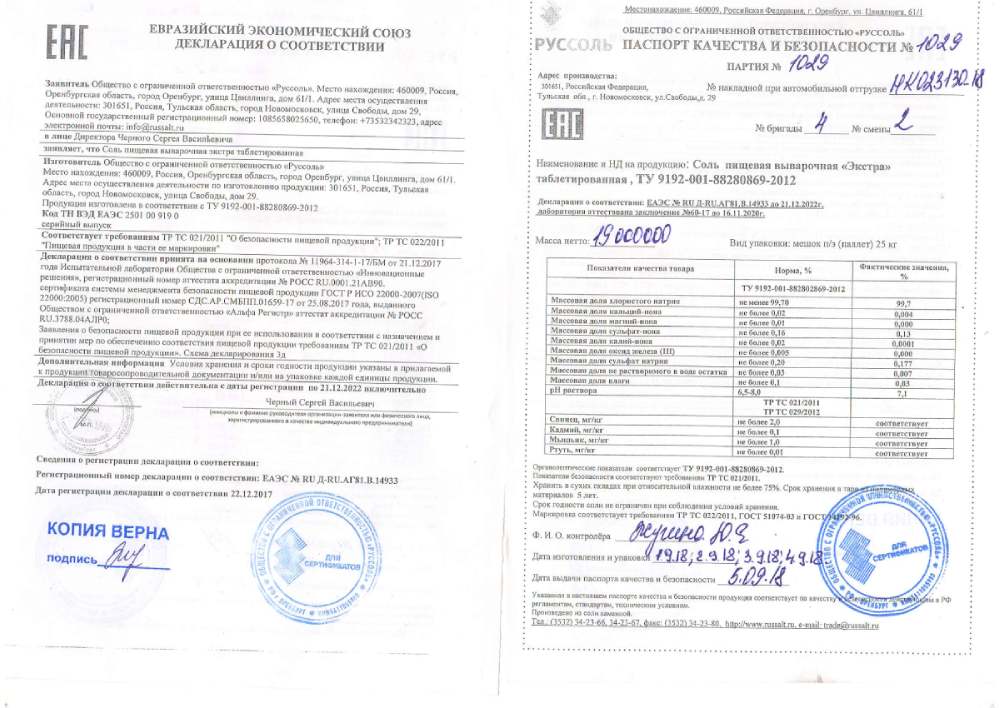 ЕАС
ЕВРАЗИЙСКИЙ ЭКОНОМИЧЕСКИЙ СОЮЗ
ДЕКЛАРАЦИЯ О СООТВЕТСТВИИ
Заявитель Общество с ограниченной ответственностью «Руссоль». Место нахождения: 460009, Россия,
Оренбургская область, город Оренбург, улица Цвиллинга, дом 61/1. Адрес места осуществления
деятельности: 301651, Россия, Тульская область, город Новомосковск, улица Свободы, дом 29.
Основной государственный регистрационный номер: 1085658025650, телефон: +73532342323, адрес
электронной почты: info@russalt.ru
в лице Директора Черного Сергея Васильевича
заявляет, что Соль пищевая выварочная экстра таблетированная
Изготовитель Общество с ограниченной ответственностью «Руссоль»
Место нахождения: 460009, Россия, Оренбургская область, город Оренбург, улица Цвиллинга, дом 61/1.
Адрес места осуществления деятельности по изготовлению продукции: 301651, Россия, Тульская
область, город Новомосковск, улица Свободы, дом 29.
Продукция изготовлена в соответствии с ТУ 9192-001-88280869-2012
Код ТН ВЭД ЕАЭС 2501 00 919 0
серийный выпуск
Соответствует требованиям ТР ТС 021/2011 "О безопасности пищевой продукции"; ТР ТС 022/2011
"Пищевая продукция в части ее маркировки"
Декларация о соответствии принята на основании протокола № 11964-314-1-17/БМ от 21.12.2017
года Испытательной лаборатории Общества с ограниченной ответственностью «Инновационные
решения», регистрационный номер аттестата аккредитации № РОСС RU.0001.21АВ90.
сертификата системы менеджмента безопасности пищевой продукции ГОСТ Р ИСО 22000-2007(ISO
22000:2005) регистрационный номер СДС.АР.СМБПП.01659-17 от 25.08.2017 года, выданного
Обществом с ограниченной ответственностью «Альфа Регистр» аттестат аккредитации № РОСС
RU.3788.04АЛР0;
Заявления о безопасности пищевой продукции при ее использовании в соответствии с назначением и
принятии мер по обеспечению соответствия пищевой продукции требованиям ТР ТС 021/2011 «О
безопасности пищевой продукции». Схема декларирования 3д
Дополнительная информация Условия хранения и сроки годности продукции указаны в прилагаемой
к продукции товаросопроводительной документации и/или на упаковке каждой единицы продукции.
Декларация о соответствии действительна с даты регистрации по 21.12.2022 включительно
Черный Сергей Васильевич
(подпись)
(инициалы и фамилия руководителя организации-заявителя или физического лица,
зарегистрированного в качестве индивидуального предпринимателя)
М.П.
Сведения о регистрации декларации о соответствии:
Регистрационный номер декларации о соответствии: ЕАЭС № RU Д-RU.АГ81.В.14933
Дата регистрации декларации о соответствии 22.12.2017
КОПИЯ ВЕРНА
подпись
ОБЩЕСТВО С ОГРАНИЧЕННОЙ ОТВЕТСТВЕННОСТЬЮ «РУССОЛЬ»
ДЛЯ
СЕРТИФИКАТОВ
РФ г. ОРЕНБУРГ
Местонахождение: 460009, Российская Федерация, г. Оренбург, ул. Цвиллинга, 61/1
РУССОЛЬ
ОБЩЕСТВО С ОГРАНИЧЕННОЙ ОТВЕТСТВЕННОСТЬЮ «РУССОЛЬ»
ПАСПОРТ КАЧЕСТВА И БЕЗОПАСНОСТИ № 1029
ПАРТИЯ № 1029
Адрес производства:
301651, Российская Федерация,
Тульская обл., г. Новомосковск, ул.Свободы,д. 29
№ накладной при автомобильной отгрузке НК023130.18
ЕАС
№ бригады 4 № смены 2
Наименование и НД на продукцию: Соль пищевая выварочная «Экстра»
таблетированная , ТУ 9192-001-88280869-2012
Декларация о соответствии: ЕАЭС № RU Д-RU.АГ81.В.14933 до 21.12.2022г.
лаборатория аттестована заключение №60-17 до 16.11.2020г.
Масса нетто: 19000000 Вид упаковки: мешок п/э (паллет) 25 кг
Показатели качества товара Норма, % Фактические значения, %
ТУ 9192-001-882802869-2012
Массовая доля хлористого натрия не менее 99,70 99,7
Массовая доля кальций-иона не более 0,02 0,004
Массовая доля магний-иона не более 0,01 0,000
Массовая доля сульфат-иона не более 0,16 0,13
Массовая доля калий-иона не более 0,02 0,0001
Массовая доля оксид железа (III) не более 0,005 0,000
Массовая доля сульфат натрия не более 0,20 0,177
Массовая доля не растворимого в воде остатка не более 0,03 0,007
Массовая доля влаги не более 0,1 0,03
pH раствора 6,5-8,0 7,1
ТР ТС 021/2011
ТР ТС 029/2012
Свинец, мг/кг не более 2,0 соответствует
Кадмий, мг/кг не более 0,1 соответствует
Мышьяк, мг/кг не более 1,0 соответствует
Ртуть, мг/кг не более 0,01 соответствует
Органолептические показатели соответствует ТУ 9192-001-88280869-2012.
Показатели безопасности соответствуют требованиям ТР ТС 021/2011.
Хранить в сухих складах при относительной влажности не более 75%. Срок хранения в таре из полимерных
материалов 5 лет.
Срок годности не ограничен при соблюдении условий хранения.
Маркировка соответствует требованиям ТР ТС 022/2011, ГОСТ 51074-03 и ГОСТ 14192-96.
Ф. И. О. контролёра
Дата изготовления и упаковки 1.9.18; 2.9.18; 3.9.18; 4.9.18
Дата выдачи паспорта качества и безопасности 5.09.18
ОБЩЕСТВО С ОГРАНИЧЕННОЙ ОТВЕТСТВЕННОСТЬЮ «РУССОЛЬ»
ДЛЯ
СЕРТИФИКАТОВ
РФ г. ОРЕНБУРГ
Указанная в настоящем паспорте качества и безопасности продукция соответствует по качеству и безопасности в РФ
регламентам, стандартам, техническим условиям.
Произведено из соли каменной.
Тел.: (3532) 34-23-66, 34-23-67, факс: (3532) 34-23-80, http://www.russalt.ru, e-mail: trade@russalt.ru